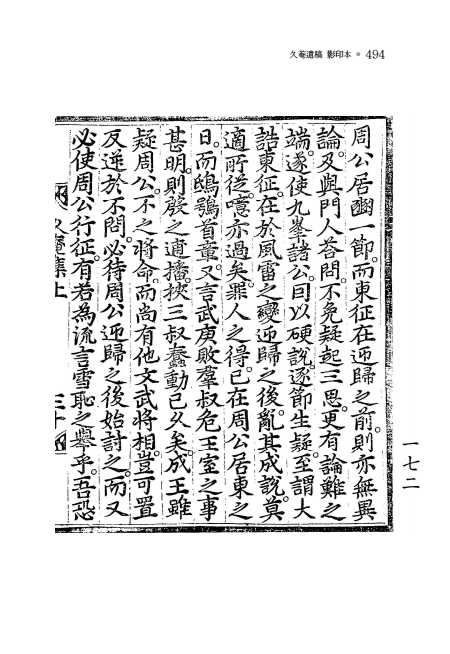 久菴遺稿 影印本 • 494
周公居豳一節。而東征在迎歸之前。則亦無異
論。及與門人荅問。不免疑起三思。更有論難之
端。遂使九峯諸公。曰以硬說。逐節生疑。至謂大
誥東征。在於風雷之變迎歸之後。亂其成說。莫
適所從。噫亦過矣。罪人之得。已在周公居東之
日。而鴟鴞首章。又言武庚敗羣叔危王室之事
甚明。則殷之逋播。挾三叔蠢動已久矣。成王雖
疑周公。不之將命。而尚有他文武將相。豈可置
反逆於不問。必待周公迎歸之後始討之。而又
必使周公行征。有若為流言雪恥之擧乎。吾恐
久菴集上
三十四
一七二